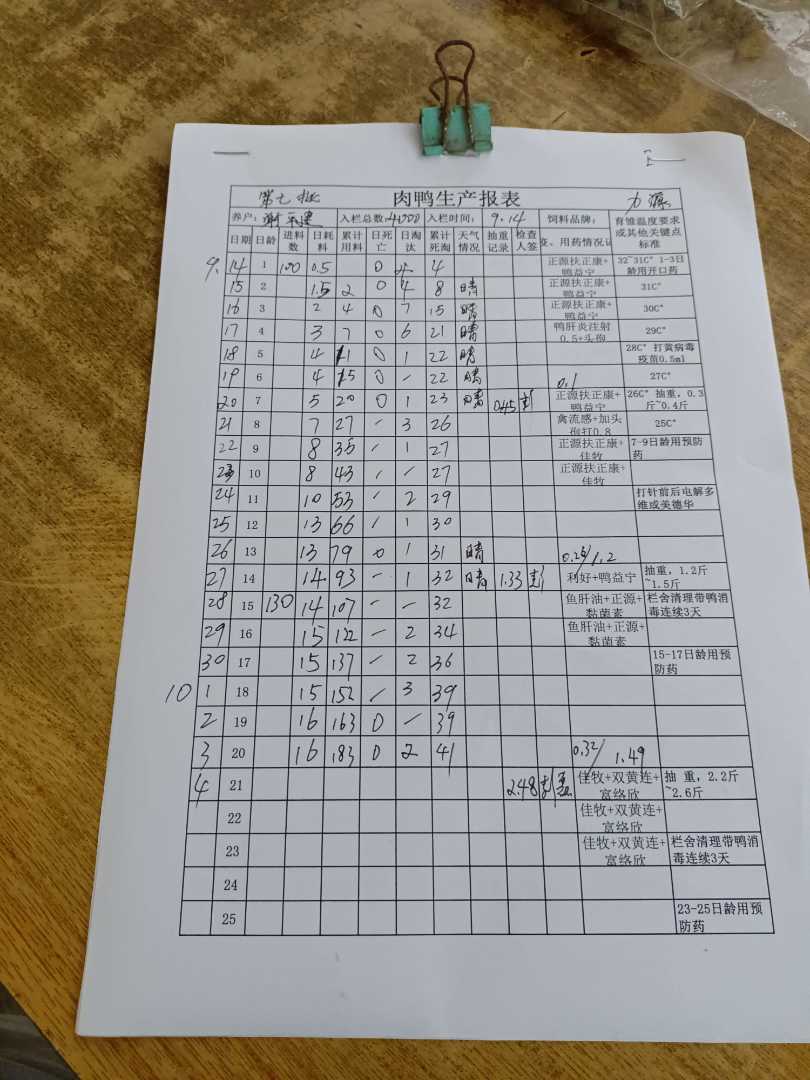 第七批 肉鸭生产报表 力源
养户： 入栏总数：4000 入栏时间： 9.14 饲料品牌： 育雏温度要求或其他关键点标准
日期 日龄 进料数 日耗料 累计用料 日死亡 日淘汰 累计死淘 天气情况 抽重记录 检查人签 变、用药情况记
9. 14 1 100 0.5 0 4 4 正源扶正康+鸭益宁 32~31C° 1-3日龄用开口药
15 2 1.5 2 0 4 8 晴 正源扶正康+鸭益宁 31C°
16 3 2 4 0 7 15 晴 正源扶正康+鸭益宁 30C°
17 4 3 7 0 6 21 晴 鸭肝炎注射0.5+头孢 29C°
18 5 4 11 0 1 22 晴 28C° 打黄病毒疫苗0.5ml
19 6 4 15 0 - 22 晴 0.1 27C°
20 7 5 20 0 1 23 晴 0.45 彭 正源扶正康+鸭益宁 26C° 抽重，0.3斤~0.4斤
21 8 7 27 - 3 26 禽流感+加头孢打0.8 25C°
22 9 8 35 - 1 27 正源扶正康+佳牧 7-9日龄用预防药
23 10 8 43 - - 27 正源扶正康+佳牧
24 11 10 53 - 2 29 打针前后电解多维或美德华
25 12 13 66 - 1 30
26 13 13 79 0 1 31 晴 0.26/1.2
27 14 14 93 - 1 32 晴 1.33 彭 利好+鸭益宁 抽重，1.2斤~1.5斤
28 15 130 14 107 - - 32 鱼肝油+正源+黏菌素 栏舍清理带鸭消毒连续3天
29 16 15 122 - 2 34 鱼肝油+正源+黏菌素
30 17 15 137 - 2 36 15-17日龄用预防药
10 1 18 15 152 - 3 39
2 19 16 163 0 - 39
3 20 16 183 0 2 41 0.32/1.49
4 21 2.48 佳牧+双黄连+富络欣 抽 重，2.2斤~2.6斤
22 佳牧+双黄连+富络欣
23 佳牧+双黄连+富络欣 栏舍清理带鸭消毒连续3天
24
25 23-25日龄用预防药